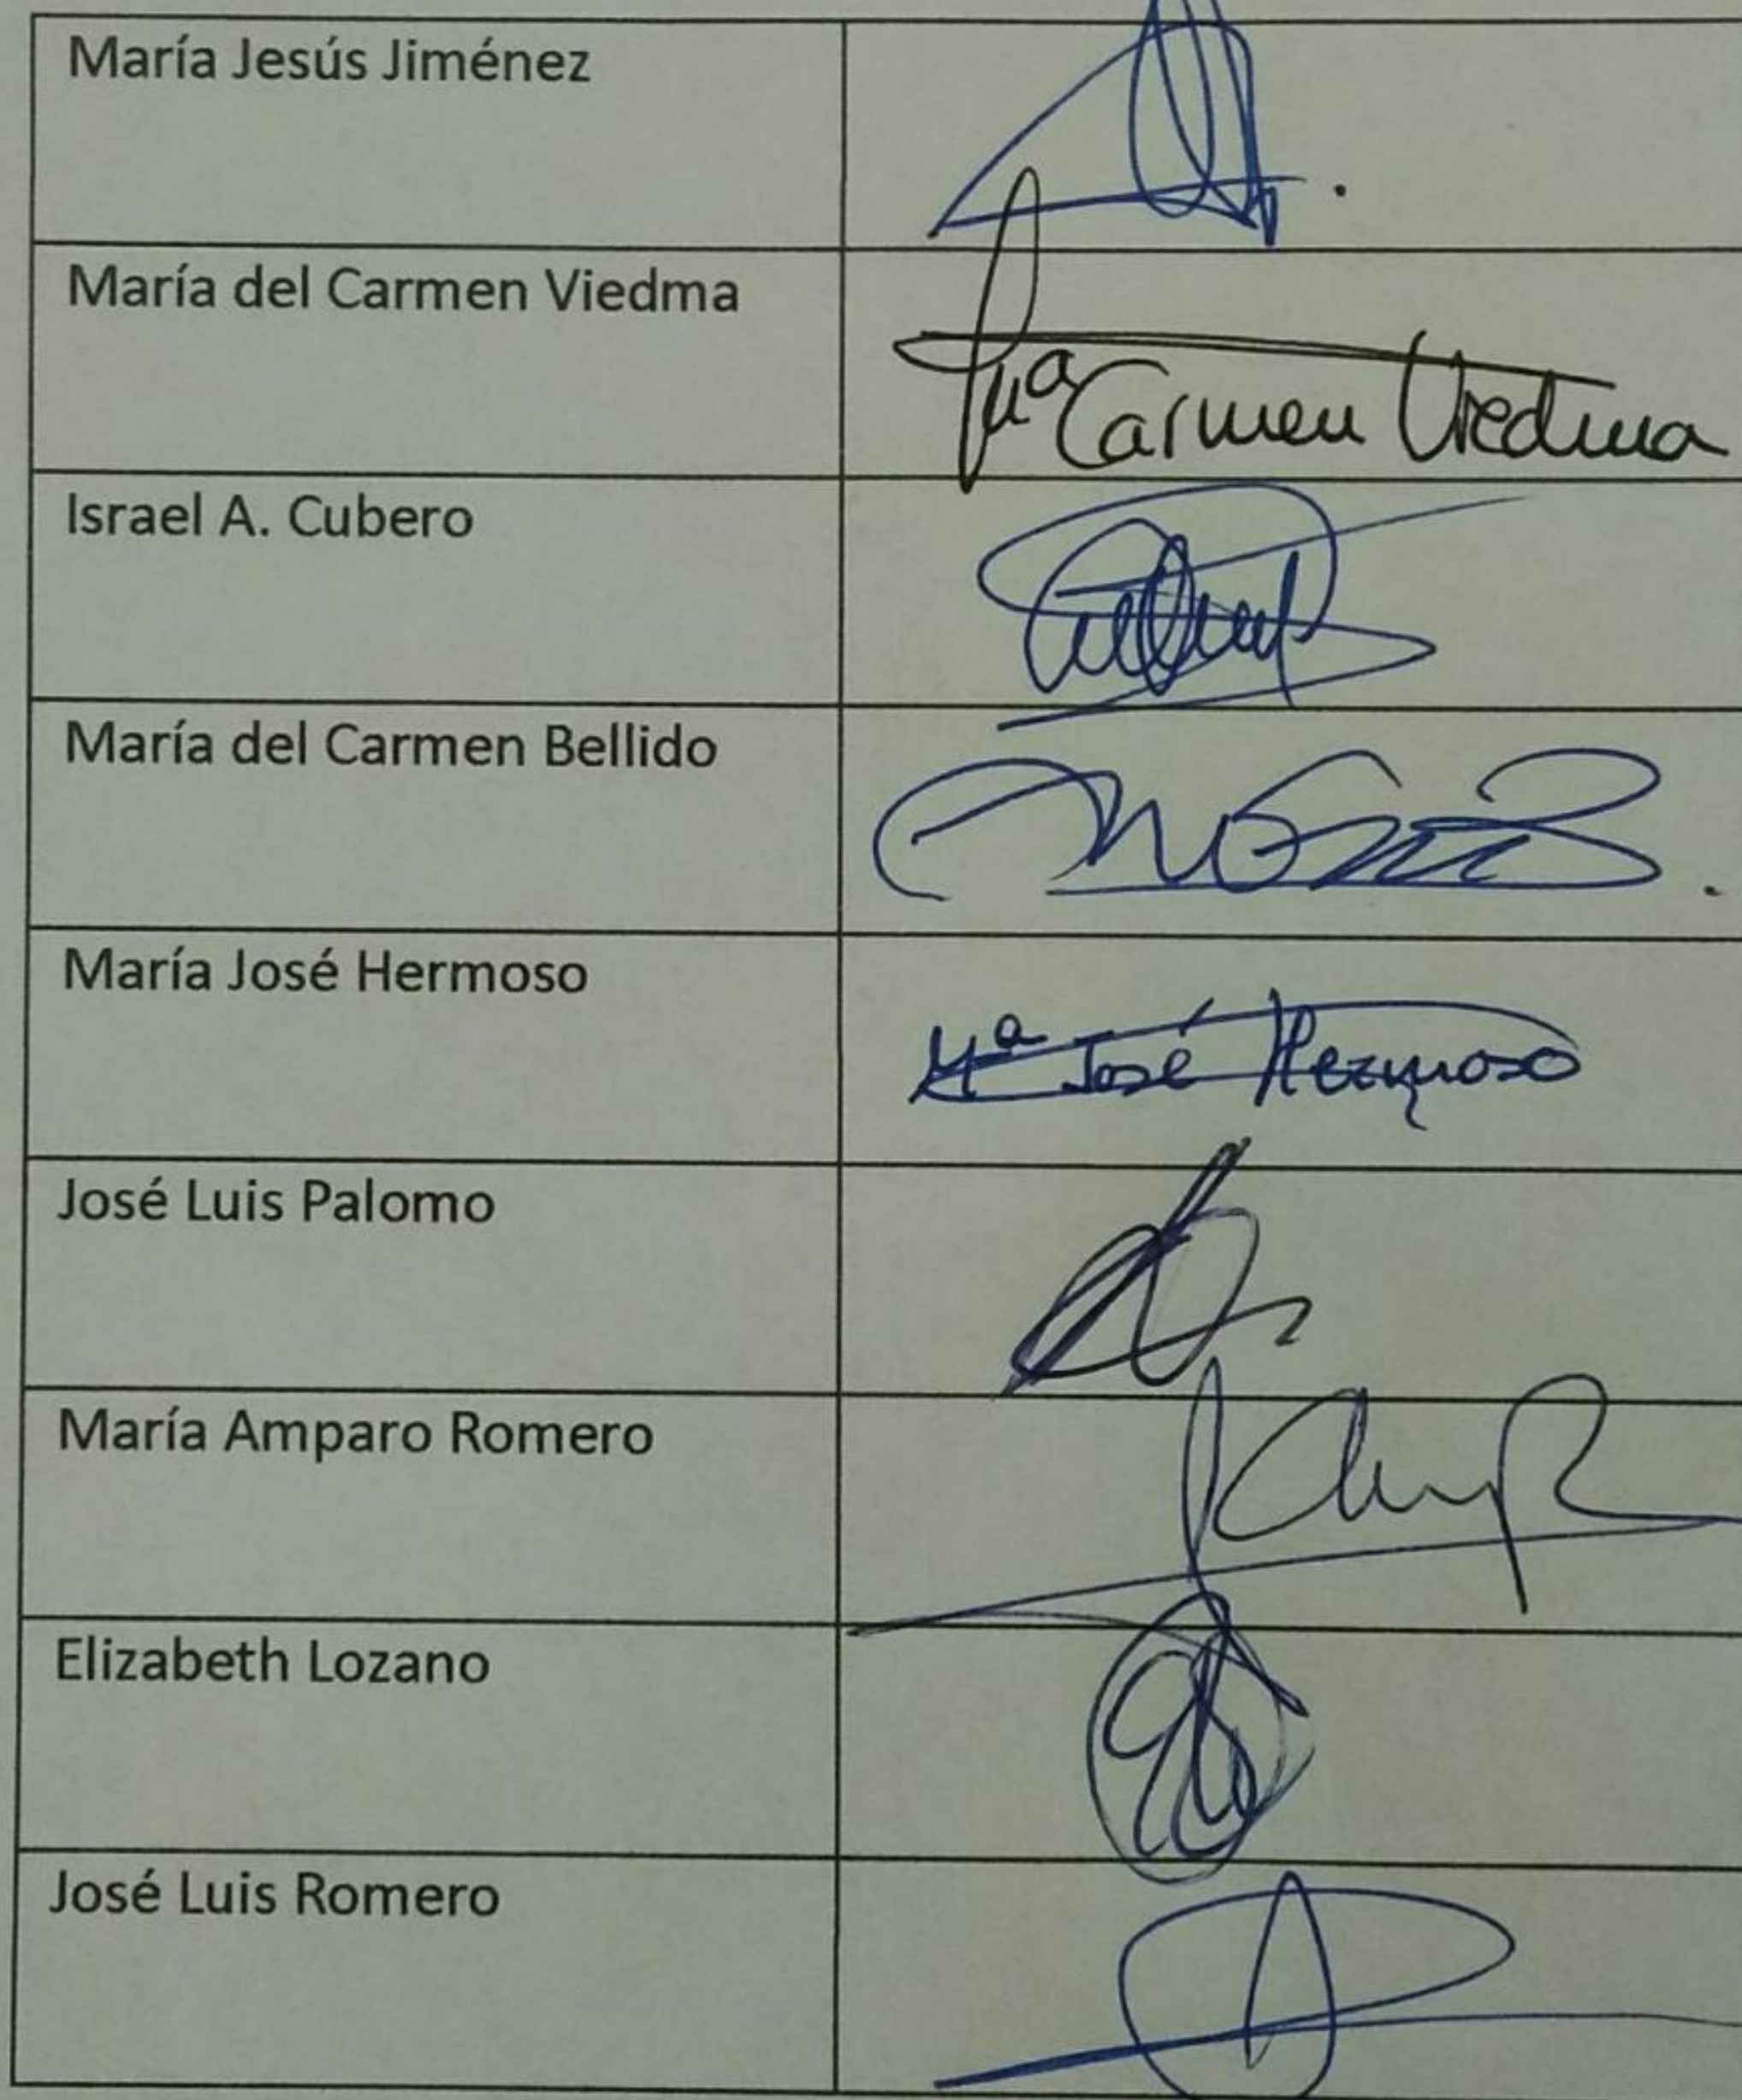 María Jesús Jiménez
María del Carmen Viedma
Mª Carmen Viedma
Israel A. Cubero
María del Carmen Bellido
María José Hermoso
Mª José Hermoso
José Luis Palomo
María Amparo Romero
Elizabeth Lozano
José Luis Romero